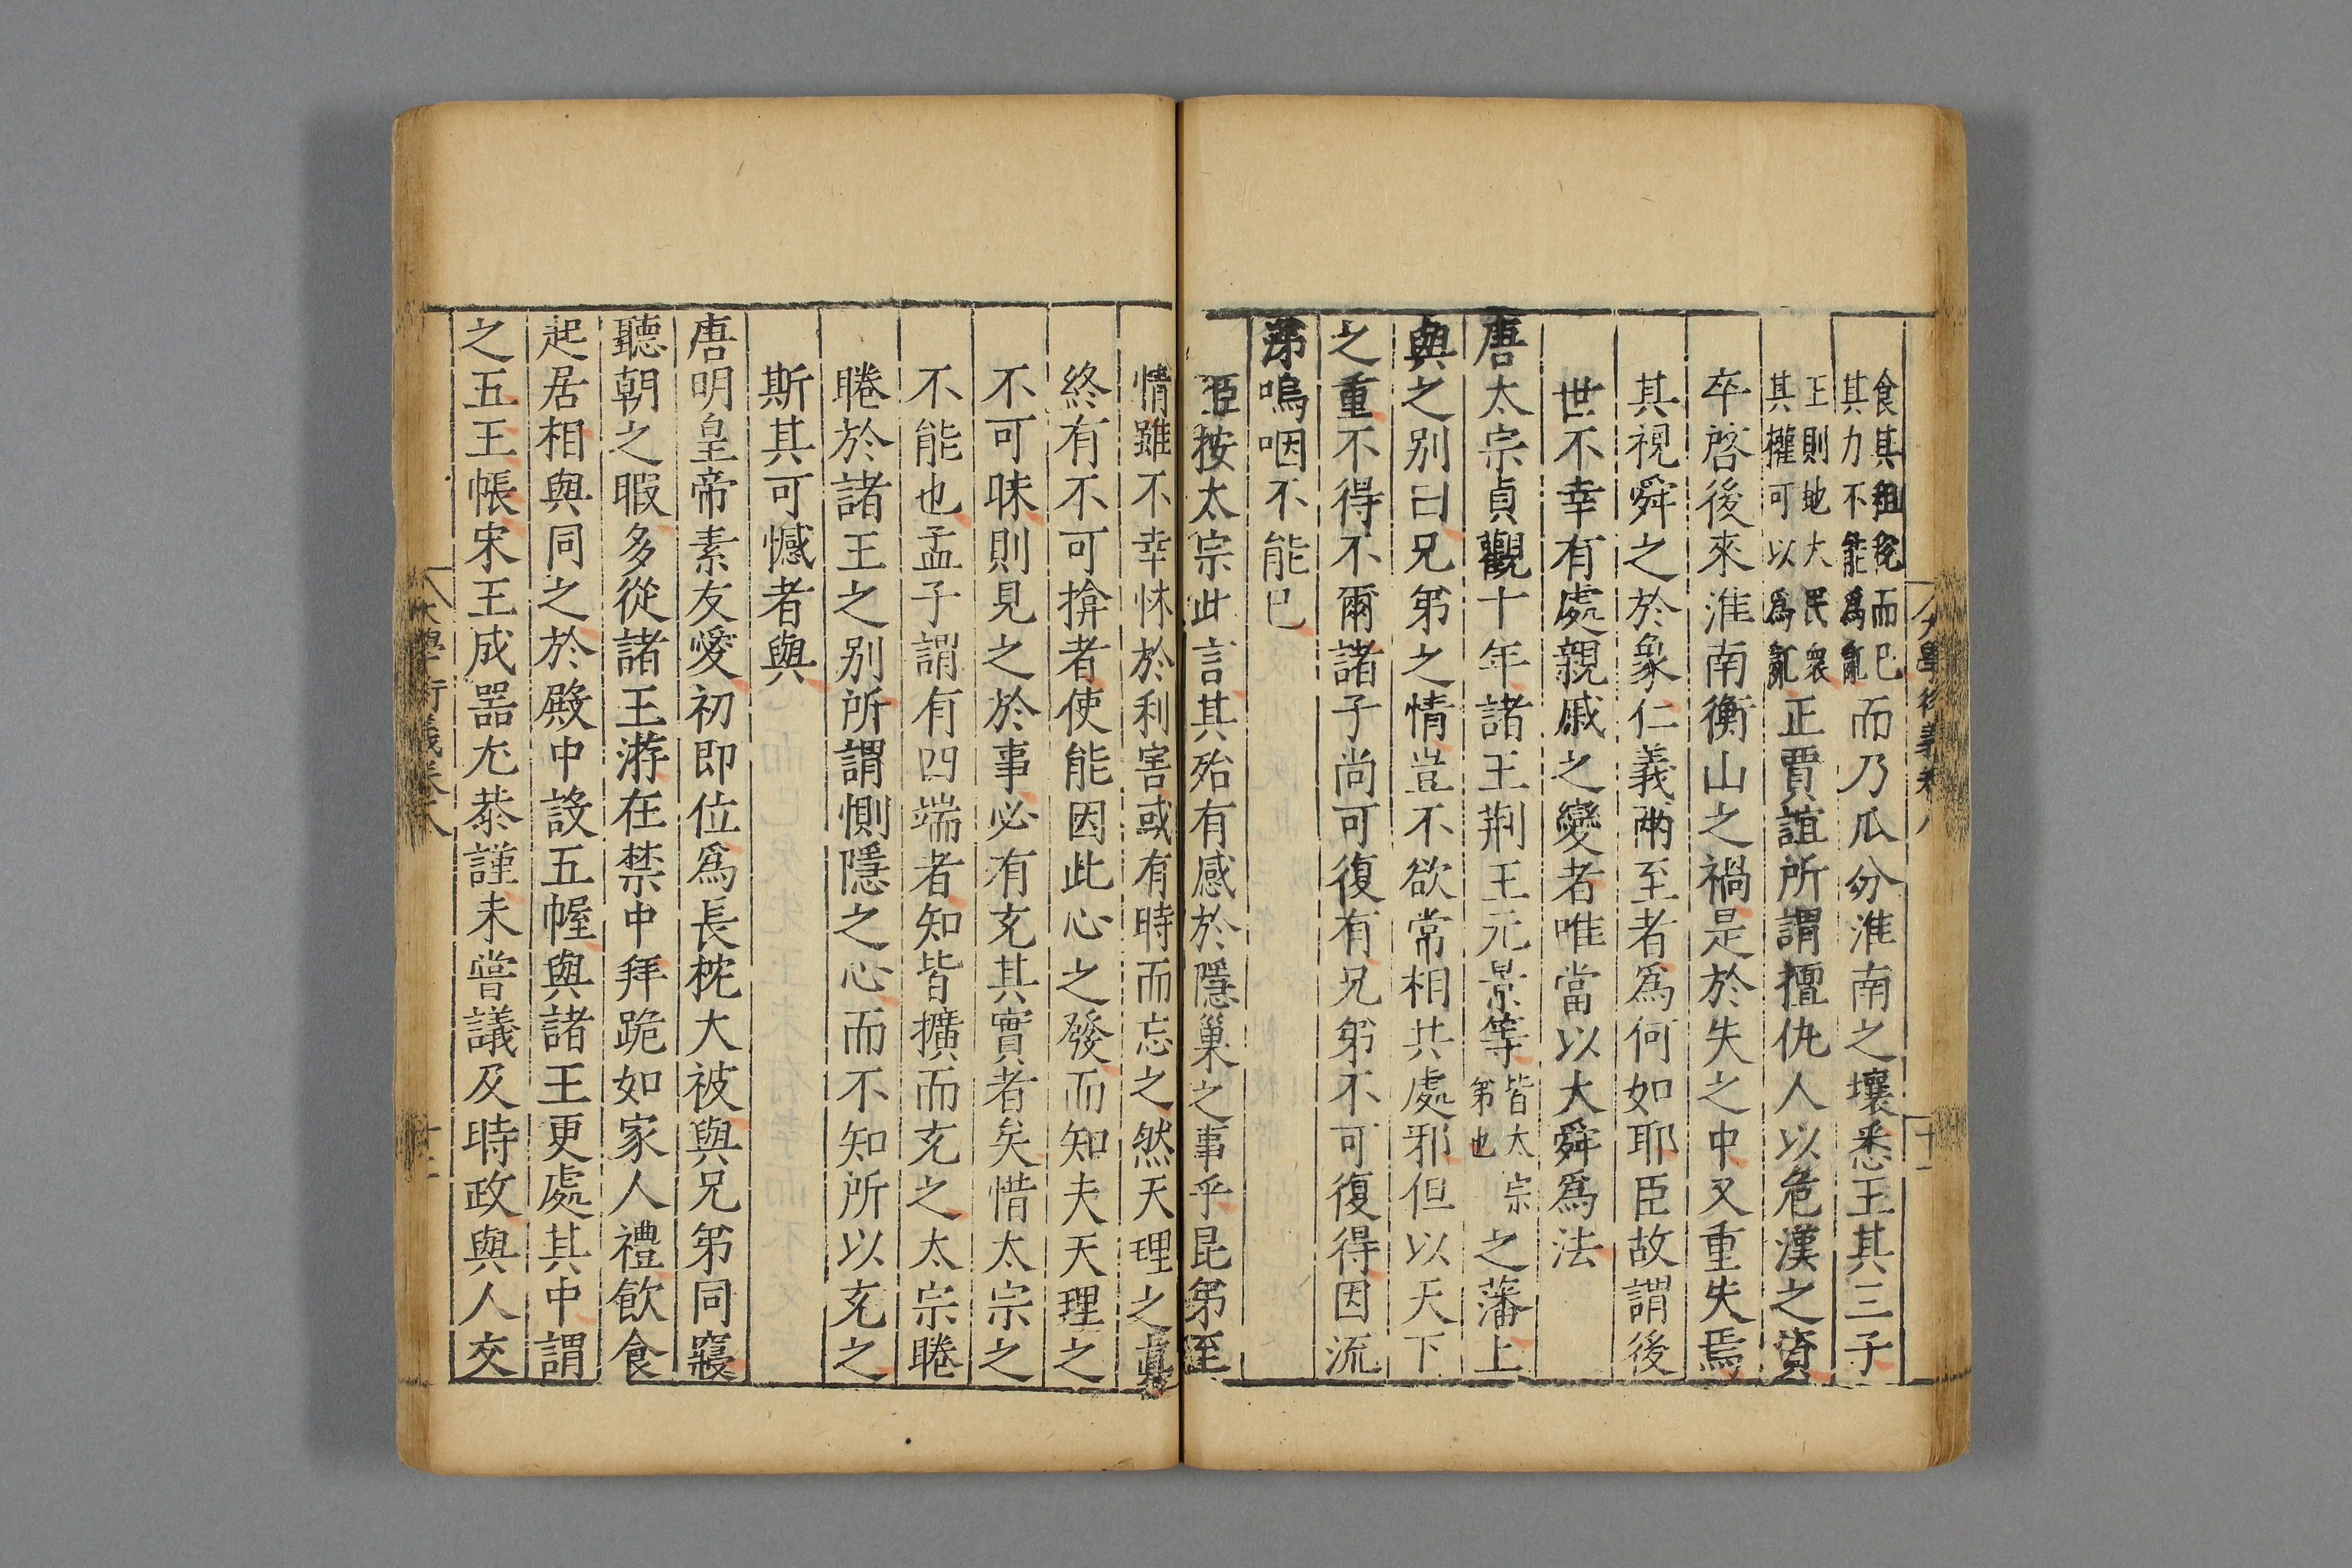 食其租稅而已其力不能爲亂而乃瓜分淮南之壤悉王其三子
王則地大民衆其權可以爲亂正賈誼所謂擅仇人以危漢之資
卒啓後來淮南衡山之禍是於失之中又重失焉
其視舜之於象仁義兩至者爲何如耶臣故謂後
世不幸有處親戚之變者唯當以大舜爲法
唐太宗貞觀十年諸王荆王元景等皆太宗弟也之藩上
與之别曰兄弟之情豈不欲常相共處邪但以天下
之重不得不爾諸子尚可復有兄弟不可復得因流
涕嗚咽不能已
臣按太宗此言其殆有感於隱巢之事乎昆弟至
情雖不幸怵於利害或有時而忘之然天理之眞
終有不可揜者使能因此心之發而知夫天理之
不可昧則見之於事必有充其實者矣惜太宗之
不能也孟子謂有四端者知皆擴而充之太宗睠
睠於諸王之别所謂惻隱之心而不知所以充之
斯其可憾者與
唐明皇帝素友愛初即位爲長枕大被與兄弟同寢
聽朝之暇多從諸王游在禁中拜跪如家人禮飲食
起居相與同之於殿中設五幄與諸王更處其中謂
之五王帳宋王成器尤恭謹未嘗議及時政與人交
大學衍義卷八